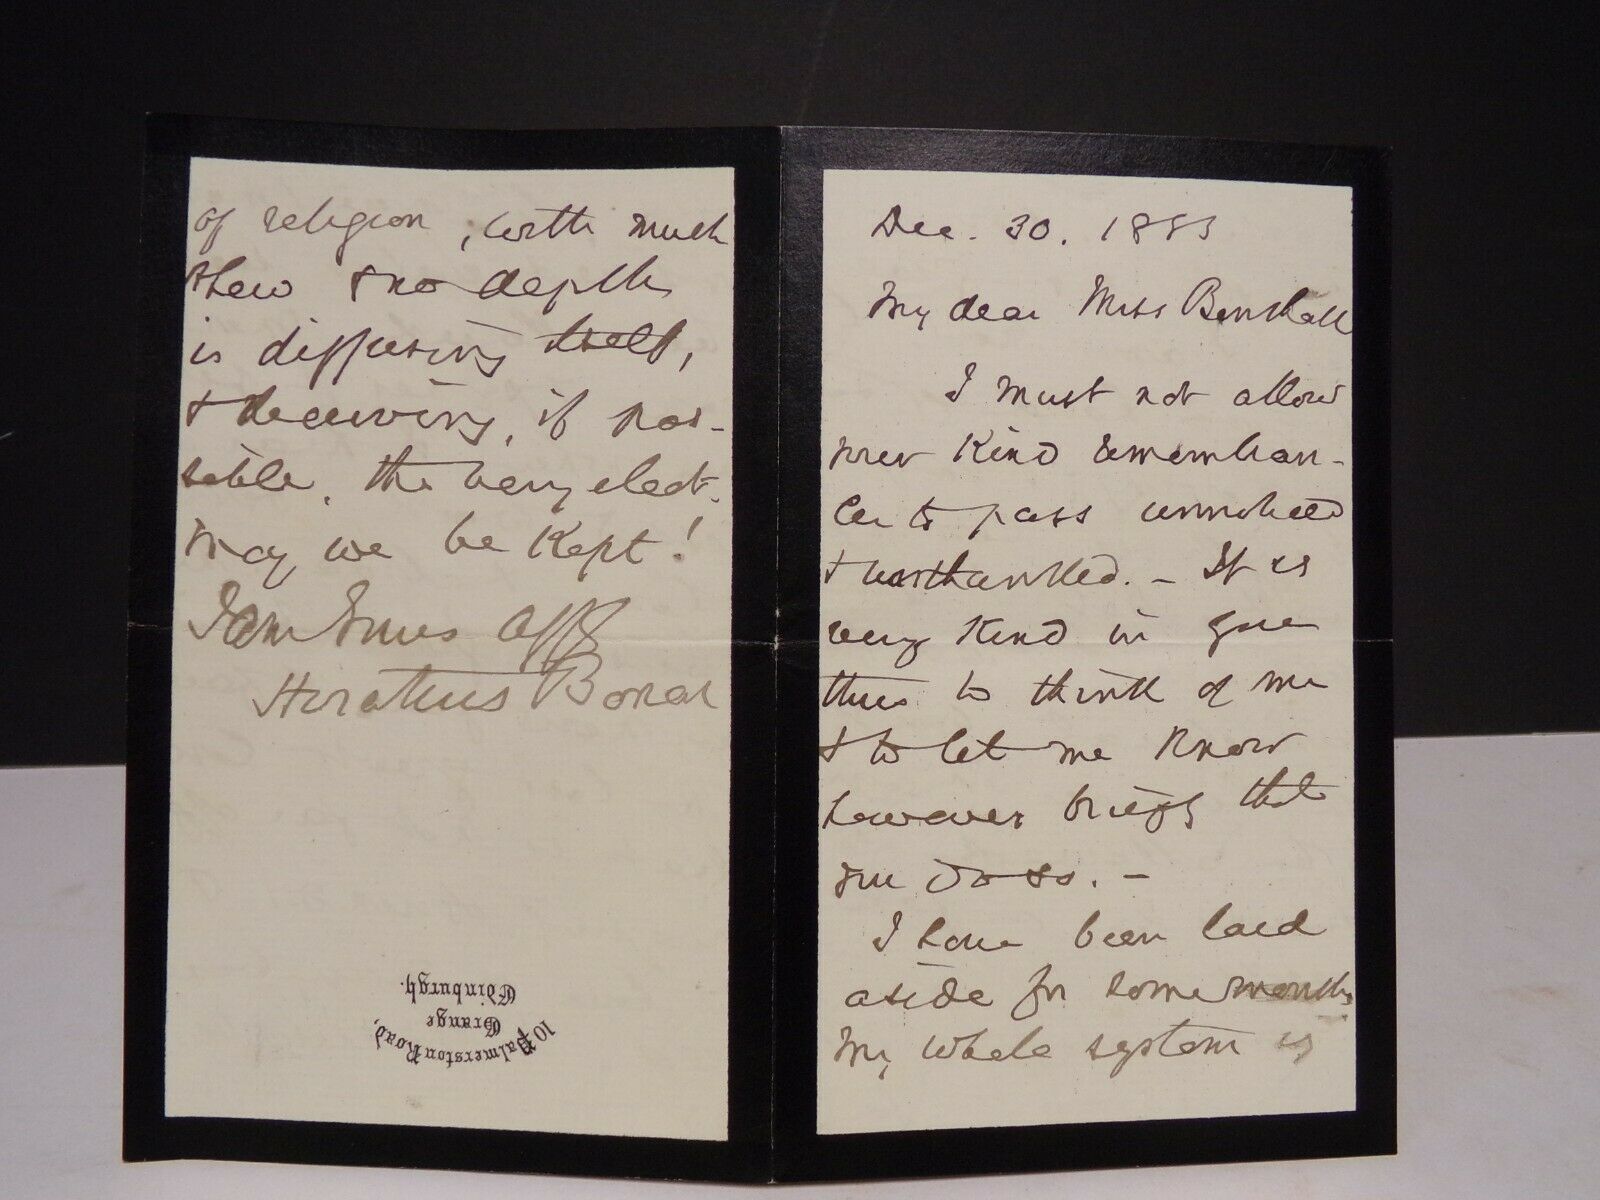 Dec. 30. 1883
My dear Miss
I must not allow
your kind remembran-
ce to pass unnoticed
& unthanked. – It is
very kind in you
thus to think of me
& to let me know
however briefly that
you do so. –
I have been laid
aside for some months
My whole system is
of religion, with much
shew & no depth
is diffusing itself,
& deceiving, if pos-
sible, the very elect.
May we be kept!
I am Yours affy
Horatius Bonar
10 Palmerston Road,
Grange
Edinburgh.